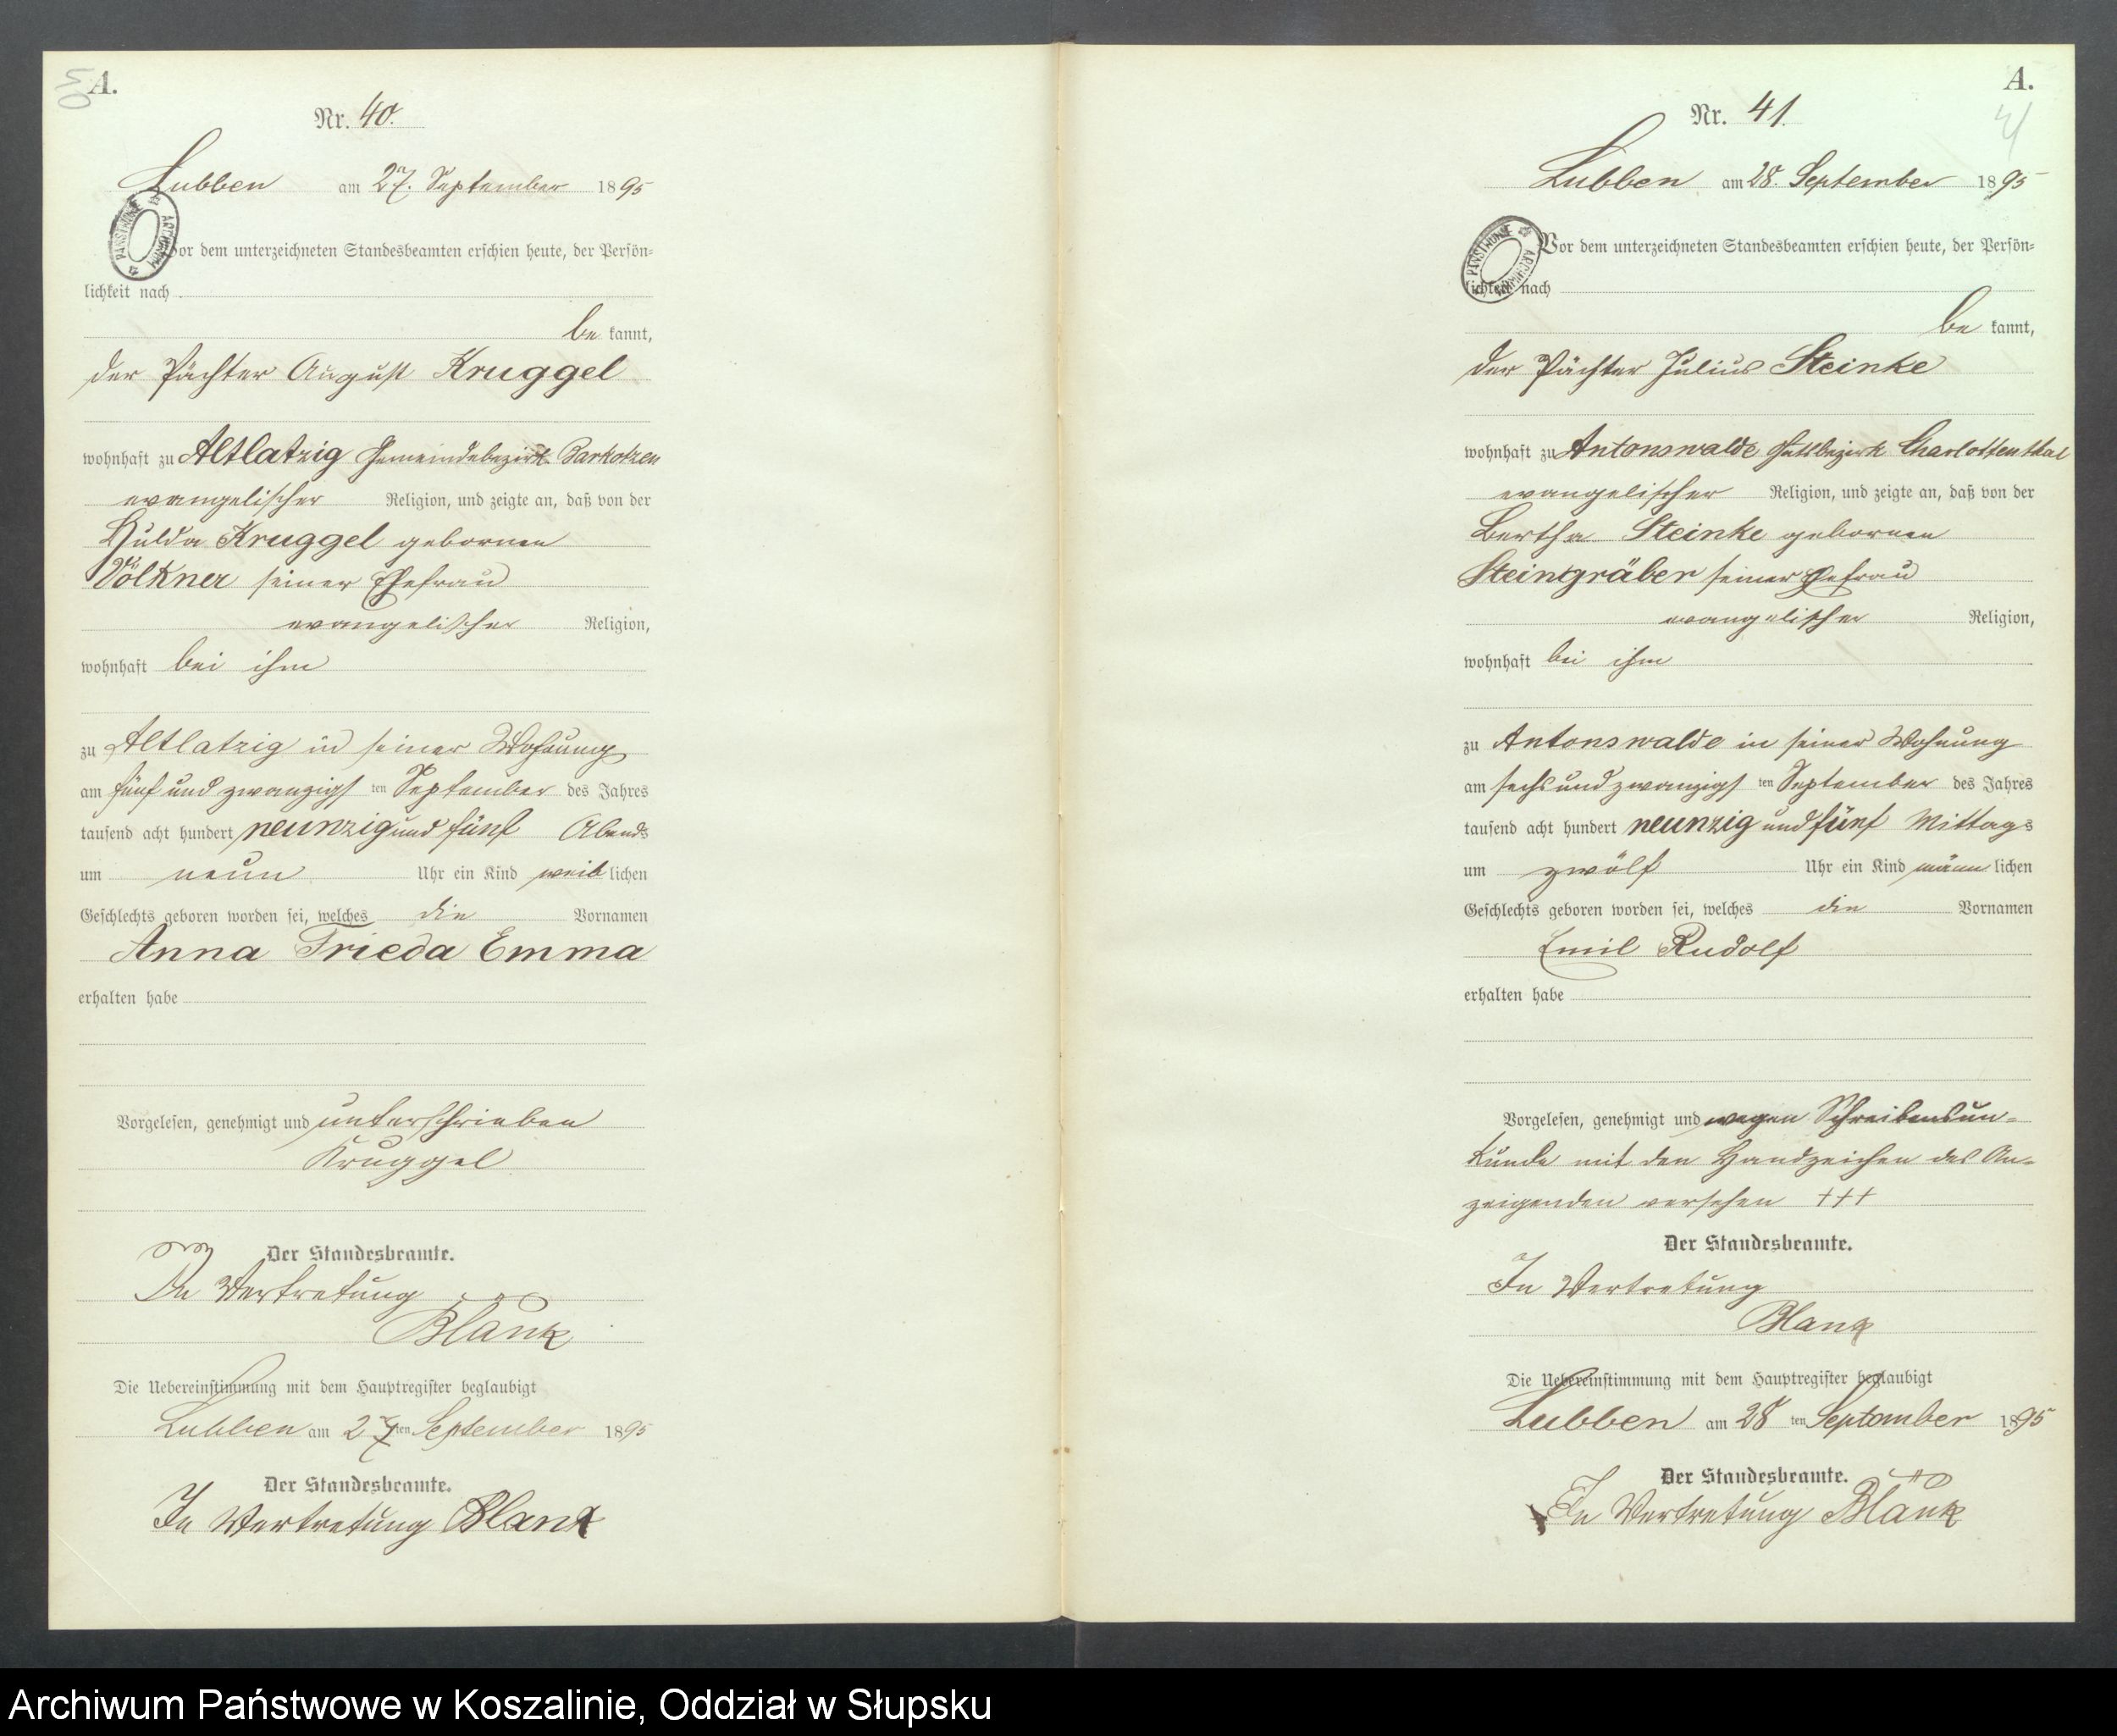 A.
Nr. 40.
Lubben am 27. September 1895
Vor dem unterzeichneten Standesbeamten erschien heute, der Persön-
lichkeit nach
be kannt,
der Pächter August Kruggel
wohnhaft zu Altlatzig Gemeindebezirk Barkotzen
evangelischer Religion, und zeigte an, daß von der
Hulda Kruggel gebornen
Völkner seiner Ehefrau
evangelischer Religion,
wohnhaft bei ihm
zu Altlatzig in seiner Wohnung
am fünf und zwanzigs ten September des Jahres
tausend acht hundert neunzig und fünf Abends
um neun Uhr ein Kind weib lichen
Geschlechts geboren worden sei, welches die Vornamen
Anna Frieda Emma
erhalten habe
Vorgelesen, genehmigt und unterschrieben
Kruggel
Der Standesbeamte.
In Vertretung
Blank
Die Uebereinstimmung mit dem Hauptregister beglaubigt
Lubben am 27 ten September 1895
Der Standesbeamte.
In Vertretung Blank
A.
41
Nr. 41.
Lubben am 28. September 1895
PAŃSTWOWE ARCHIWUM
Vor dem unterzeichneten Standesbeamten erschien heute, der Persön-
lichkeit nach
be kannt,
der Pächter Julius Steinke
wohnhaft zu Antonswalde Gutsbezirk Charlottenthal
evangelischer Religion, und zeigte an, daß von der
Bertha Steinke gebornen
Steingräber seiner Ehefrau
evangelischer Religion,
wohnhaft bei ihm
zu Antonswalde in seiner Wohnung
am sechs und zwanzigs ten September des Jahres
tausend acht hundert neunzig und fünf Mittags
um zwölf Uhr ein Kind männ lichen
Geschlechts geboren worden sei, welches die Vornamen
Emil Rudolf
erhalten habe
Vorgelesen, genehmigt und wegen Schreibensun-
kunde mit den Handzeichen des An-
zeigenden versehen +++
Der Standesbeamte.
In Vertretung
Blank
Die Uebereinstimmung mit dem Hauptregister beglaubigt
Lubben am 28 ten September 1895
Der Standesbeamte.
In Vertretung Blank
Archiwum Państwowe w Koszalinie, Oddział w Słupsku